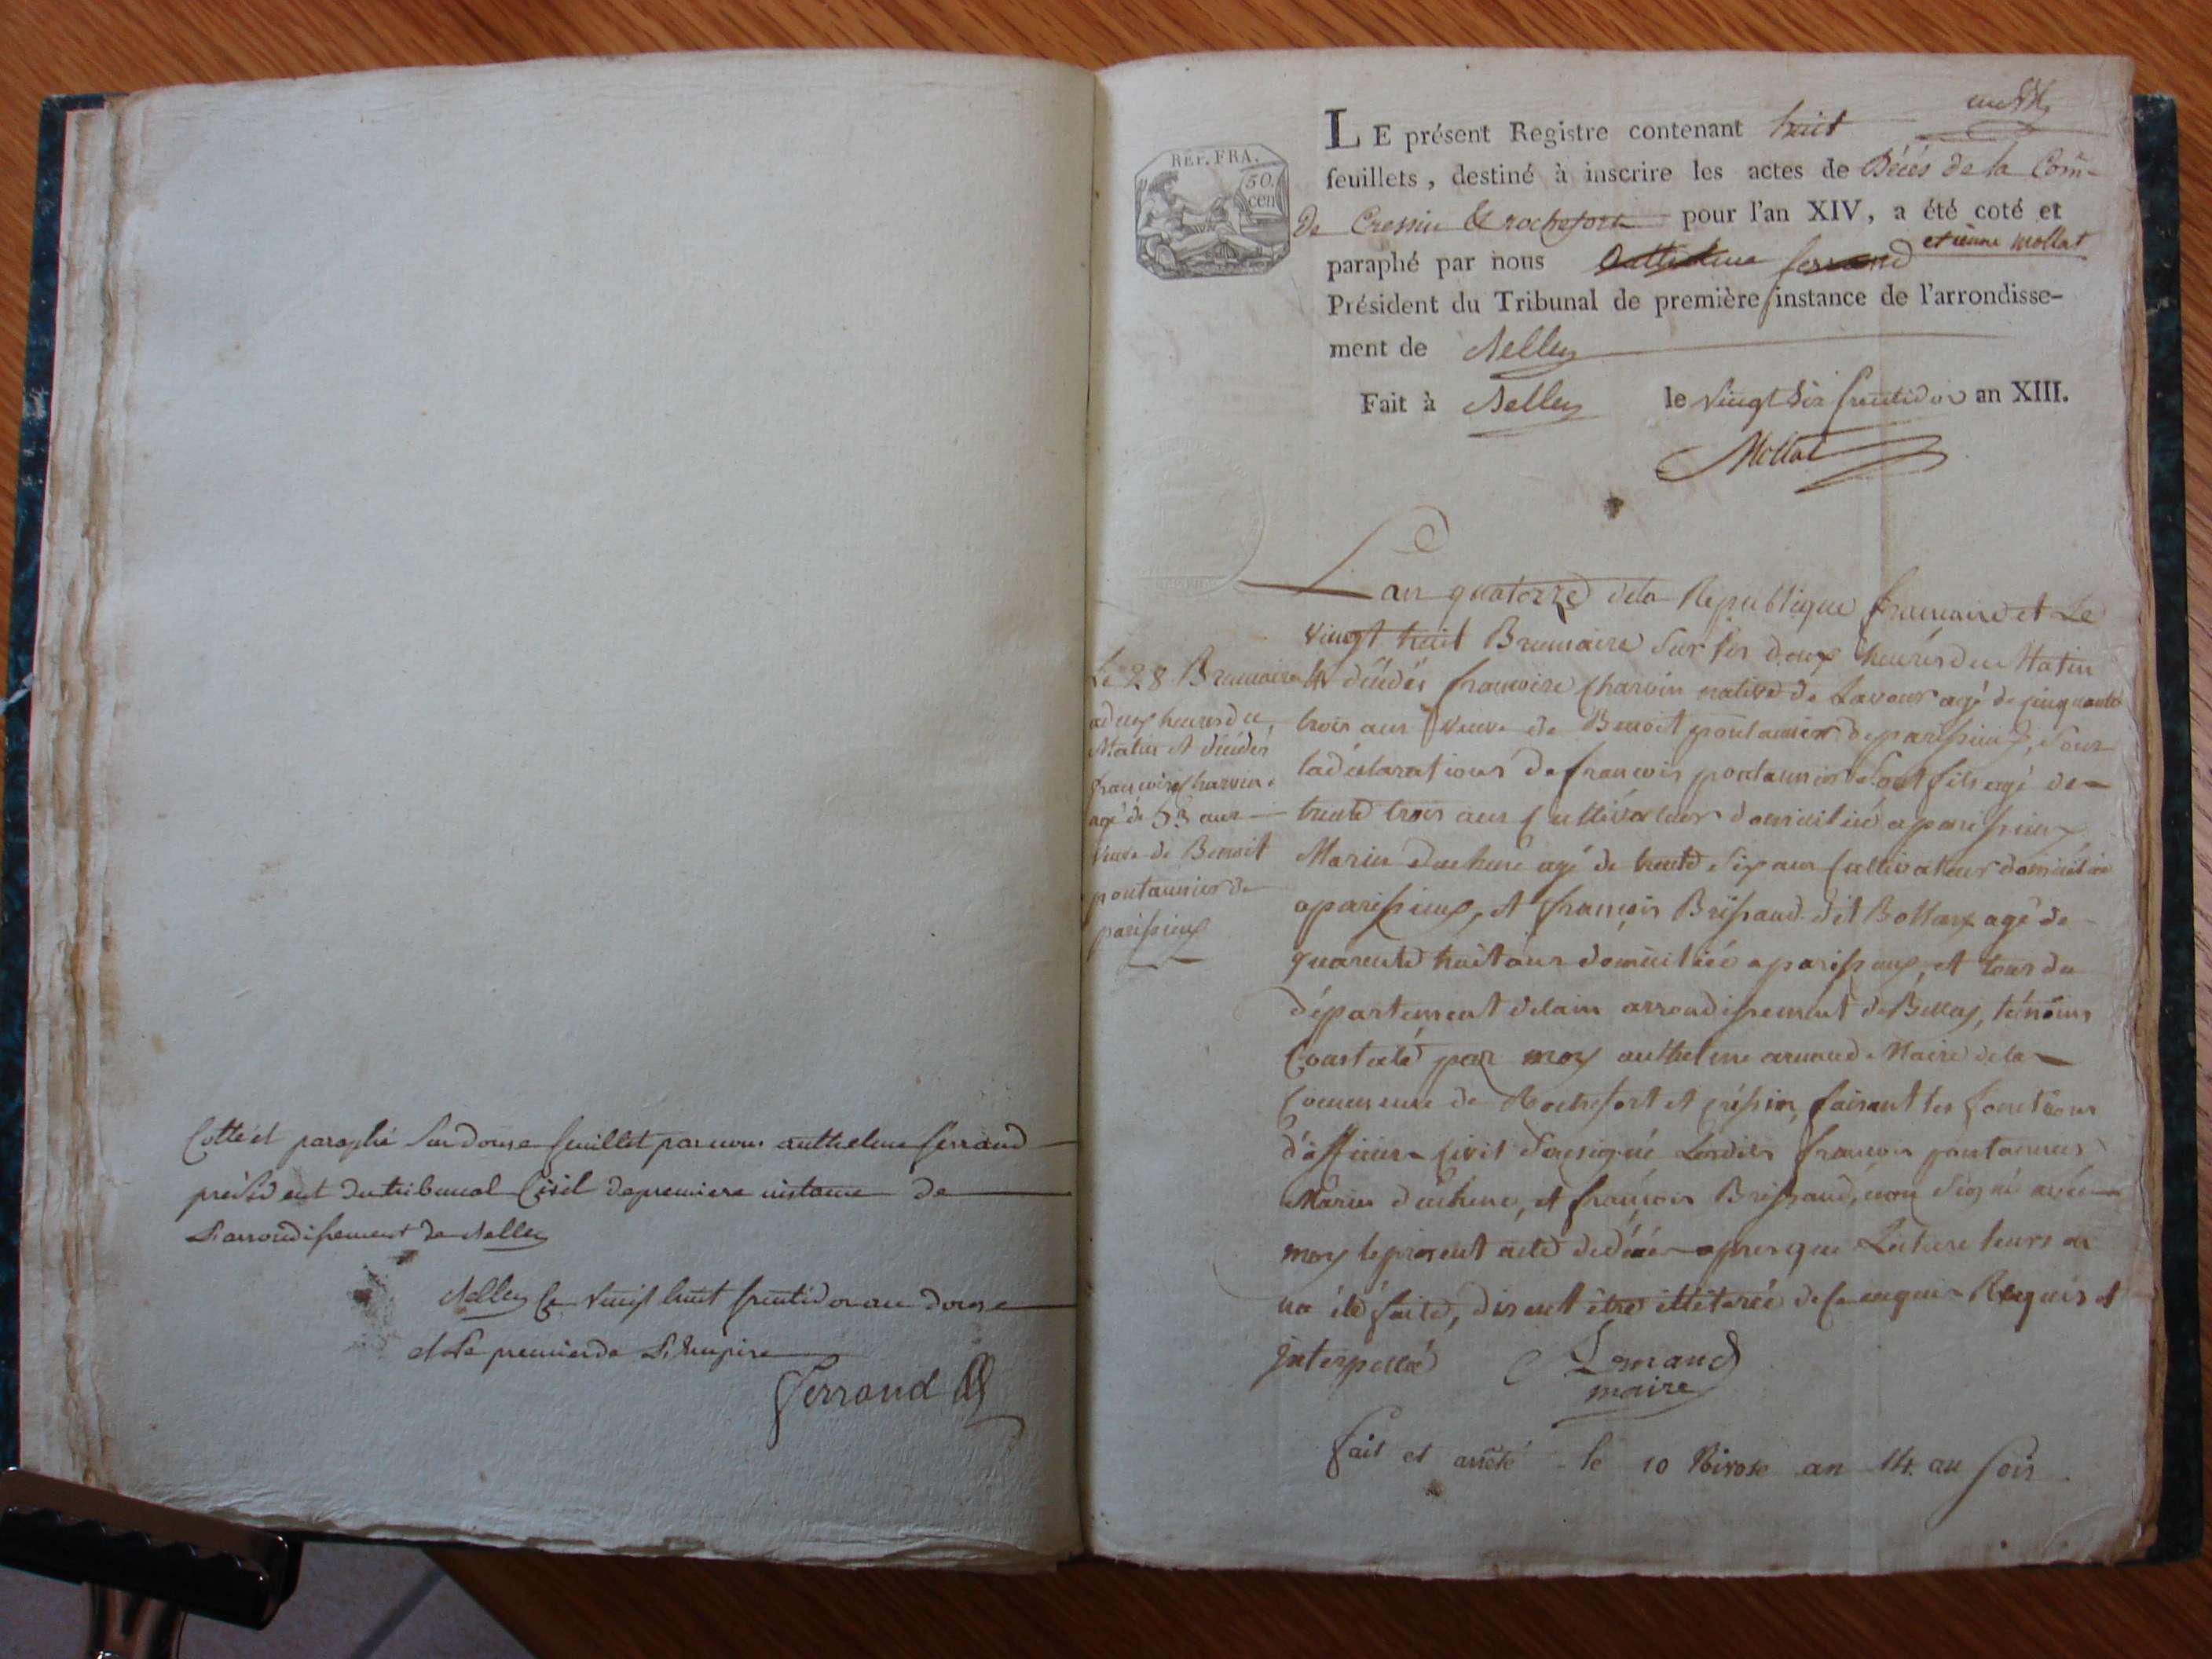 Cotté et paraphé Sur douse feuillet par nous anthelme ferrand
président du tribunal Civil de premiere instance de
L'arrondissement de Belley
Belley Le Vingt huit fructidor an douse
et le premier de L'Empire
Ferrand
REP. FRA.
50.
cen
LE présent Registre contenant huit
feuillets, destiné à inscrire les actes de Décés de la Com
de Cressin & rochefort pour l'an XIV, a été coté et
paraphé par nous Anthelme ferrand etienne Mollat
Président du Tribunal de première instance de l'arrondisse-
ment de Belley
Fait à Belley le Vingt Six fructidor an XIII.
Mollat
Le 28 Brumaire
a deux heures du
Matin et décédés
françoise Charvin
agé de 53 ans
Veuve de Benoit
pontannier de
parissieux
L'an quatorze de la Republique francaise et Le
vingt huit Brumaire Sur les deux heures du Matin
et décédés françoise Charvin native de Lavour agé de cinquante
trois ans Veuve de Benoit pontannier de parissieux, Sur
la déclarations de françois pontannier Sont fils agé de
trente trois ans Cultivateur domicilié a parissieux
Marin duchene agé de trente six ans Cultivateur domicilié
a parissieux, et françois Brissaud dit Bottex agé de
quarente huit ans domicilié a parissieux, et tous du
département delain arrondissement de Belley, témoins
Constaté par moy anthelme armand Maire de la
Commune de Rochefort et créssin, faisant les fonctions
d'officier Civil Sousigné Lesdits françois pontannier
Marin duchene, et françois Brissaud, non Signé avec
moy le present acte de décés apres que Lecture leurs en
na été faite, disent être illiterée de ce enquis Requis et
interpellé
Armand
maire
fait et arrêté le 10 Nivose an 14 au soir.